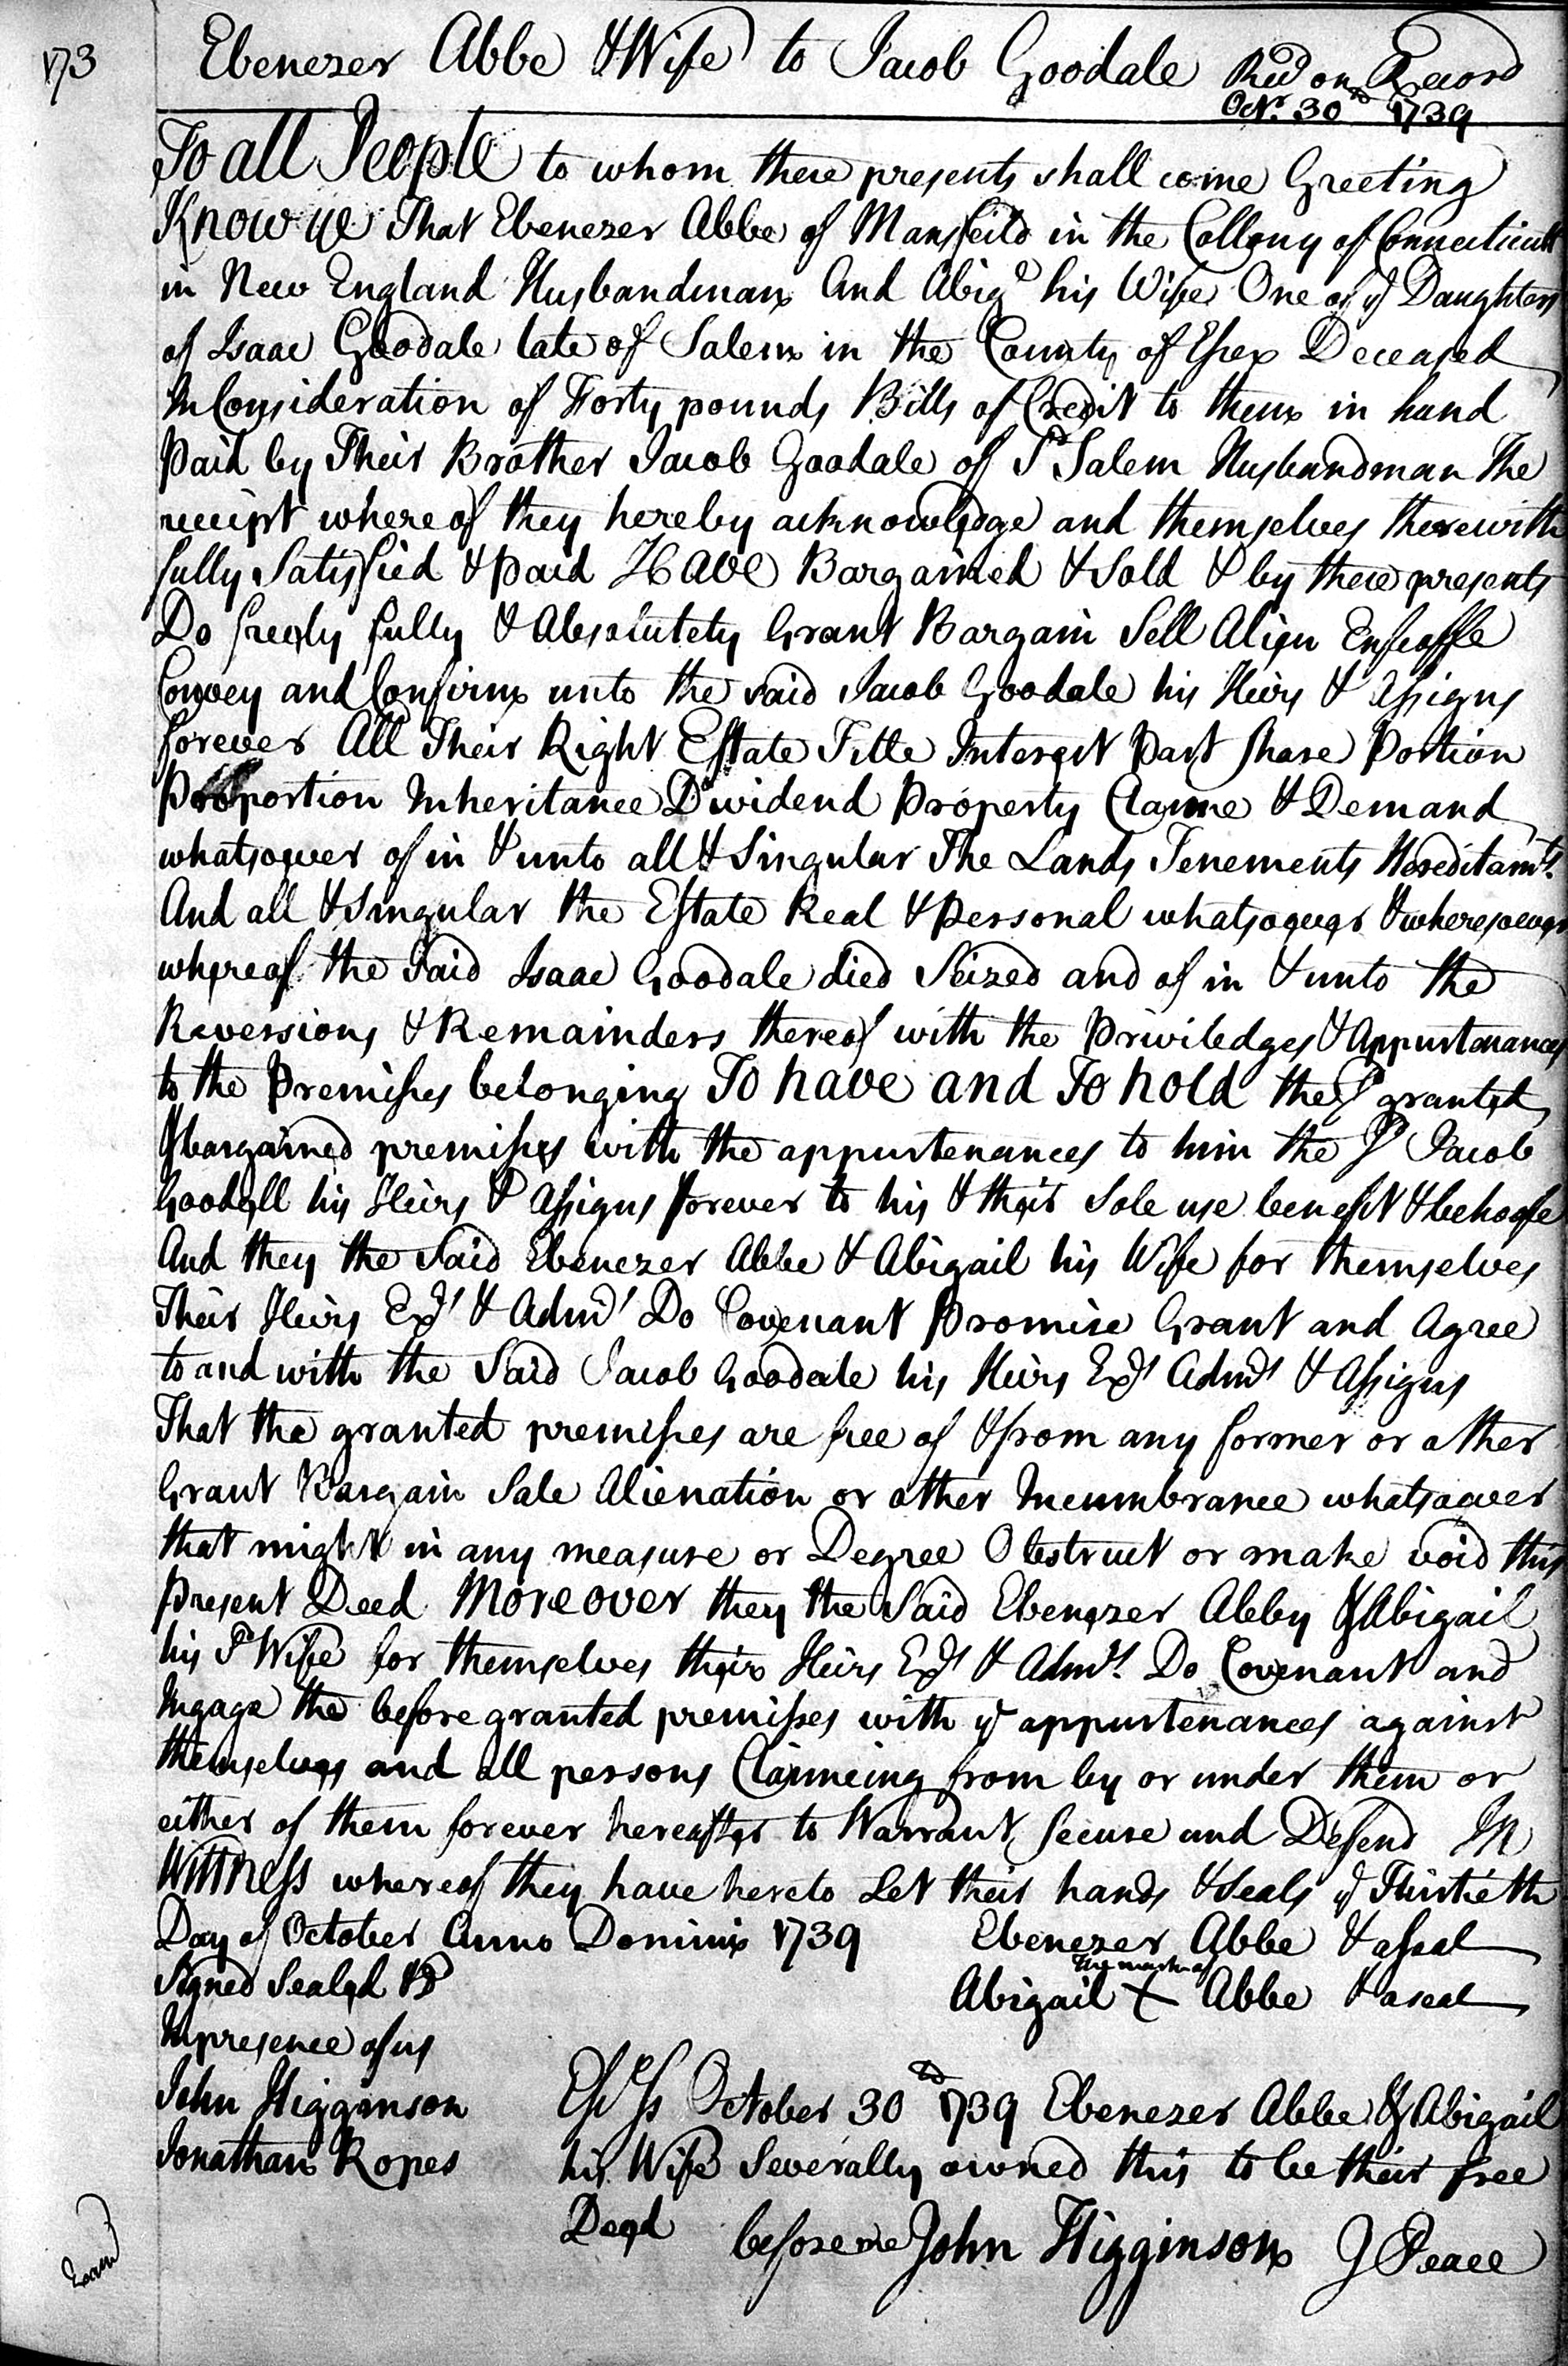 173
Ebenezer Abbe & Wife to Jacob Goodale Recd on Record
Octr. 30th 1739
To all People to whom these presents shall come Greeting
Know ye That Ebenezer Abbe of Mansfeild in the Collony of Connecticutt
in New England Husbandman And Abigl his Wife One of ye Daughters
of Isaac Goodale late of Salem in the County of Essex Deceased
In Consideration of Forty pounds Bills of Credit to them in hand
Paid by Their Brother Jacob Goodale of sd Salem Husbandman The
receipt whereof they hereby acknowledge and themselves therewith
fully Satisfied & paid Have Bargained & Sold & by these presents
Do freely fully & Absolutely Grant Bargain Sell Alien Enfeoffe
Convey and Confirm unto the said Jacob Goodale his Heirs & assigns
forever All Their Right Estate Title Interest Part share Portion
Proportion Inheritance Dividend Property Claime & Demand
whatsoever of in & unto all & Singular The Lands Tenements Hereditamts.
And all & singular the Estate Real & personal whatsoever & wheresoever
whereof the Said Isaac Goodale died Seized and of in & unto the
Reversions & Remainders thereof with the Priviledges & Appurtenances
to the Premisses belonging To have and To hold the sd granted
& bargained premisses with the appurtenances to him the sd Jacob
Goodell his Heirs & Assigns forever to his & their Sole use benefit & behoofe
And they the Said Ebenezer Abbe & Abigail his Wife for themselves
Their Heirs Exrs & Admrs Do Covenant Promise Grant and Agree
to and with the Said Jacob Goodale his Heirs Exrs Admrs & Assigns
That the granted premisses are free of & from any former or other
Grant Bargain Sale Alienation or other Incumbrance whatsoever
that might in any measure or Degree Obstruct or make void this
present Deed Moreover they the Said Ebenezer Abby & Abigail
his sd Wife for themselves their Heirs Exrs & Admrs. Do Covenant and
Ingage the before granted premisses with ye appurtenances against
themselves and all persons Claimeing from by or under them or
either of them forever hereafter to Warrant Secure and Defend In
Wittness whereof they have hereto Set their hands & Seals ye Thirtieth
Day of October Anno Domini 1739 Ebenezer Abbe & a seal
Signed Sealed &c
the mark of
Abigail X Abbe & a seal
In presence of us
John Higginson
Jonathan Ropes
Essex ss October 30th 1739 Ebenezer Abbe & Abigail
his Wife Severally owned this to be their free
Deed before me John Higginson J Peace
Exam